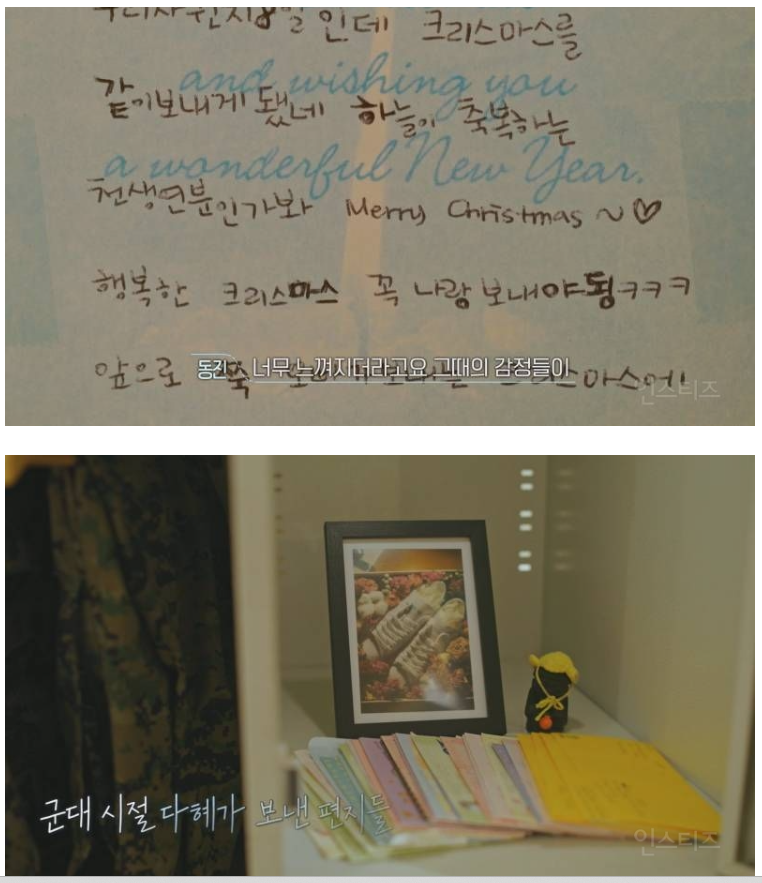 인데 크리스마스를
and wishing you
같이보내게 됐네 하늘이 축복하는
a wonderful New Year.
천생연분인가봐 Merry Christmas ~♡
행복한 크리스마스 꼭 나랑 보내야됭ㅋㅋㅋ
앞으로
동진 너무 느껴지더라고요 그때의 감정들이
인스티즈
군대 시절 다혜가 보낸 편지들
인스티즈